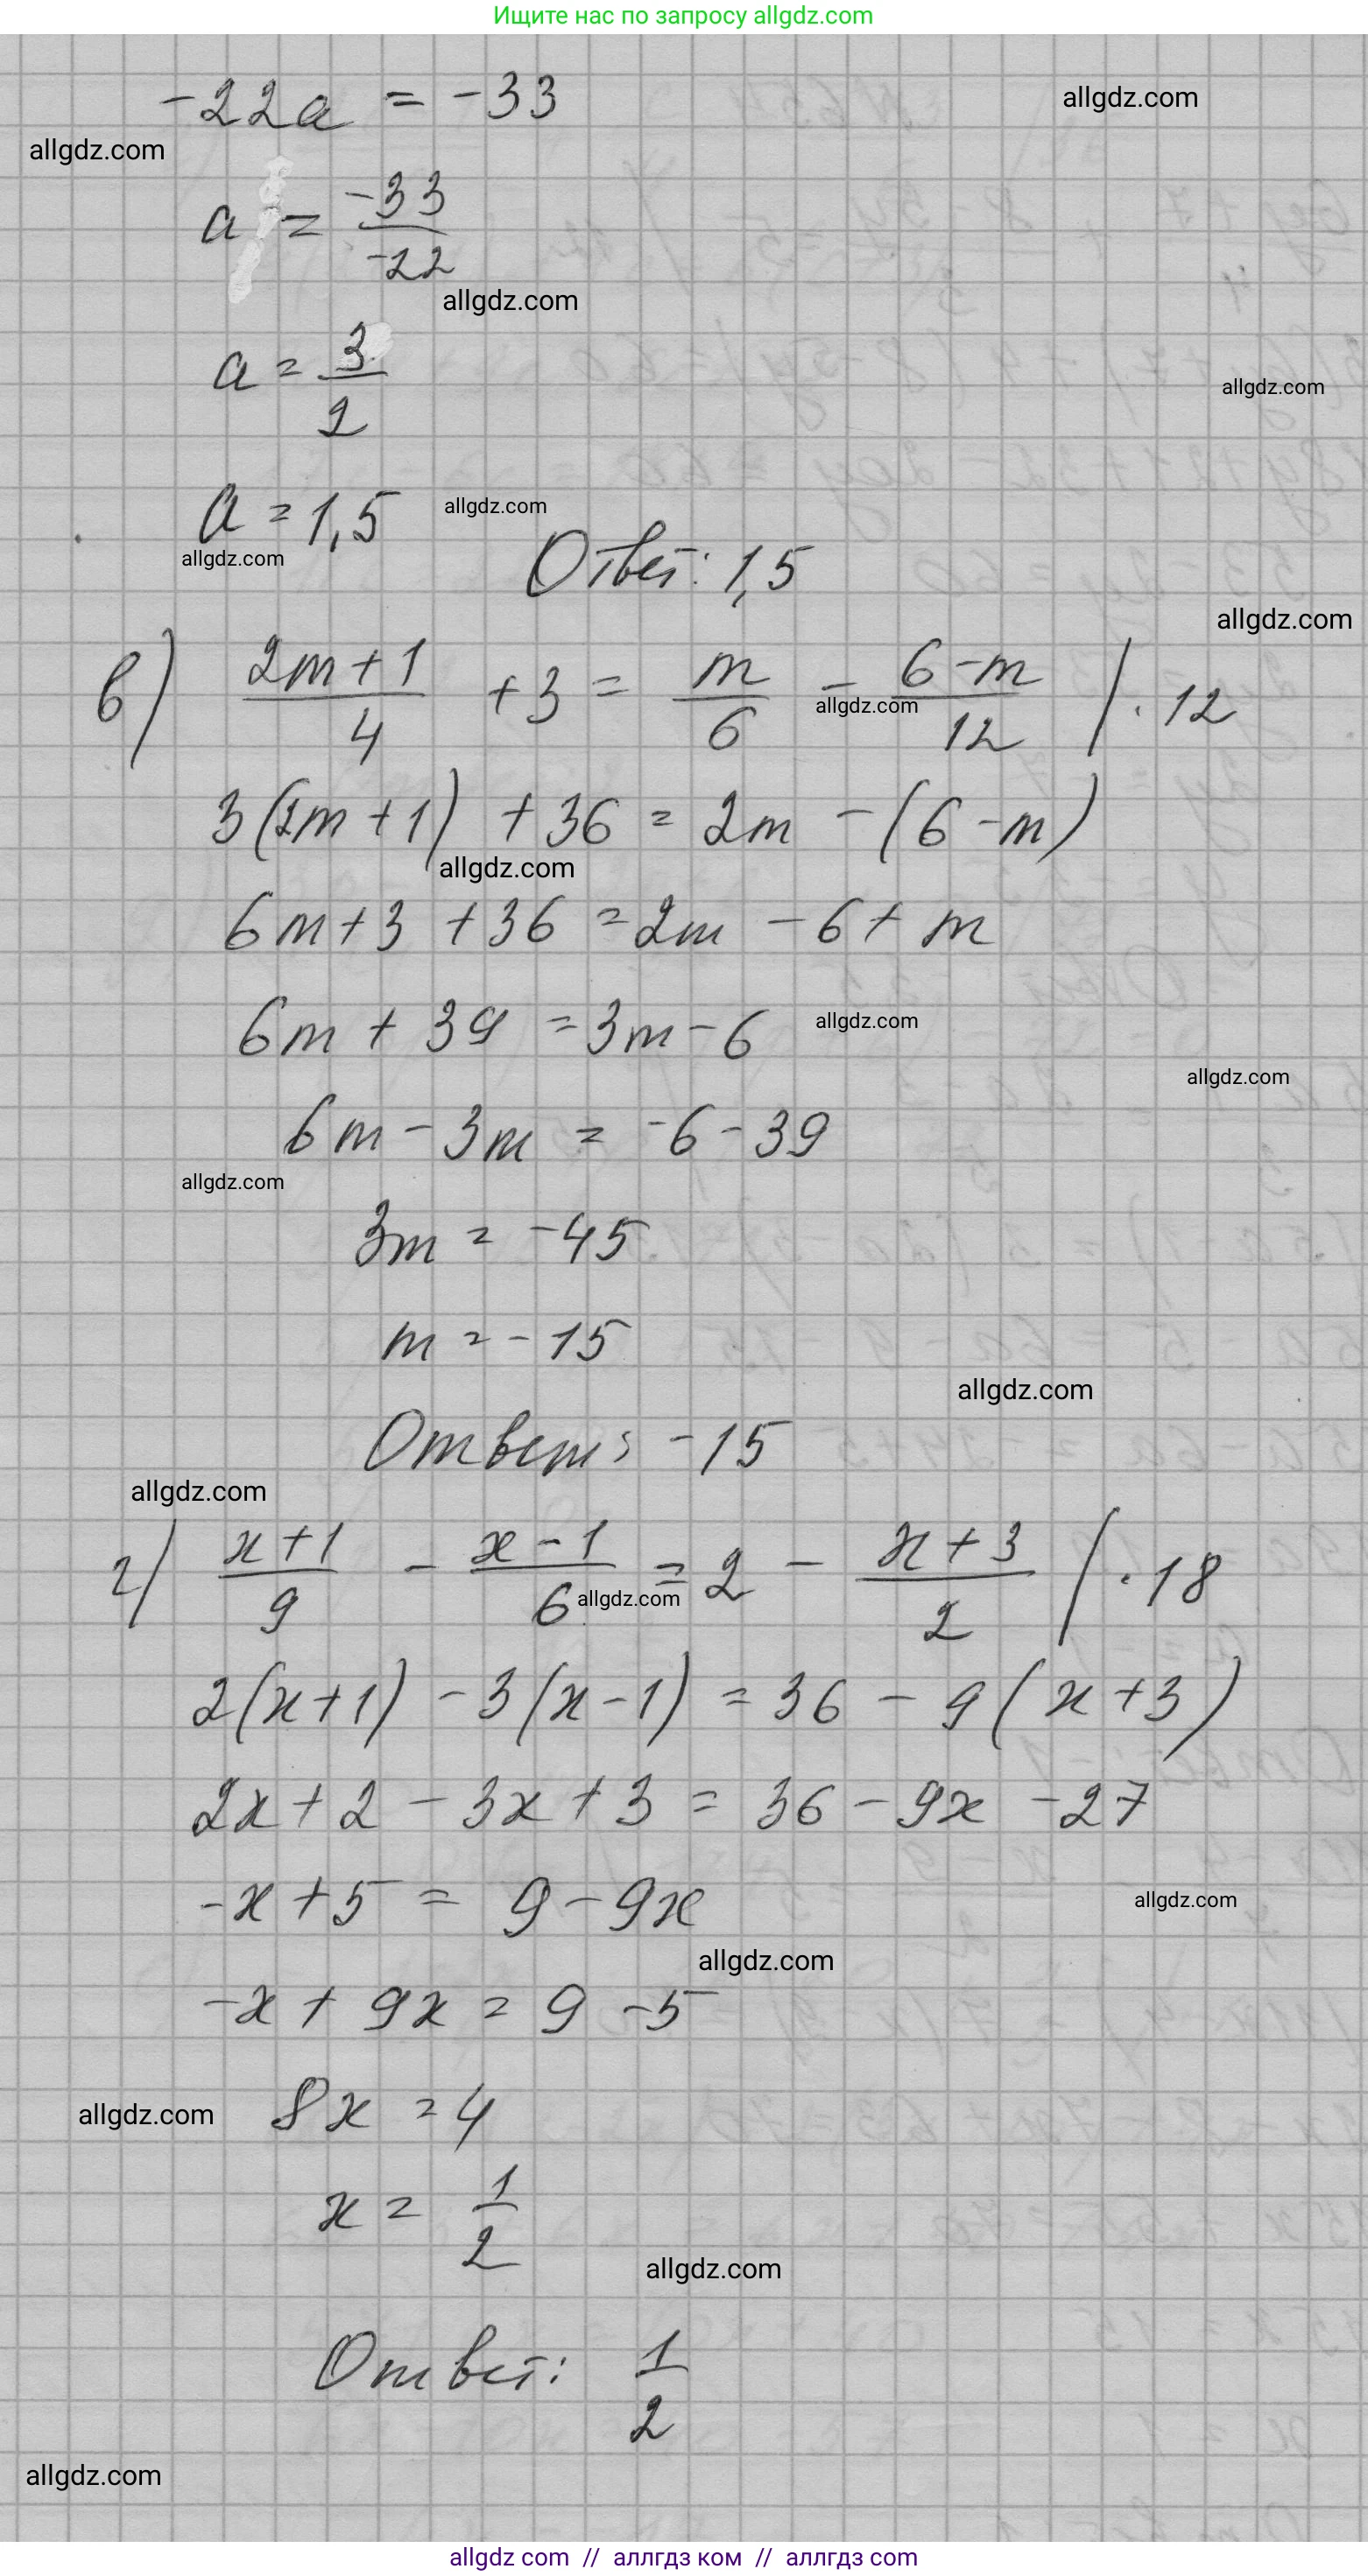 Ищите нас по запросу allgdz.com
-22a = -33
allgdz.com
allgdz.com
a = -33/-22
allgdz.com
a = 3/2
allgdz.com
a = 1,5
allgdz.com
allgdz.com
Ответ: 1,5
allgdz.com
в) (2m+1)/4 + 3 = m/6 - (6-m)/12 / · 12
allgdz.com
3(2m+1) + 36 = 2m - (6-m)
allgdz.com
6m+3 + 36 = 2m - 6 + m
6m + 39 = 3m - 6
allgdz.com
allgdz.com
6m - 3m = -6 - 39
allgdz.com
3m = -45
m = -15
allgdz.com
Ответ: -15
allgdz.com
г) (x+1)/9 - (x-1)/6 = 2 - (x+3)/2 / · 18
allgdz.com
2(x+1) - 3(x-1) = 36 - 9(x+3)
2x+2 - 3x+3 = 36 - 9x - 27
-x+5 = 9-9x
allgdz.com
allgdz.com
-x + 9x = 9 - 5
8x = 4
allgdz.com
x = 1/2
allgdz.com
Ответ: 1/2
allgdz.com
allgdz com // аллгдз ком // аллгдз com